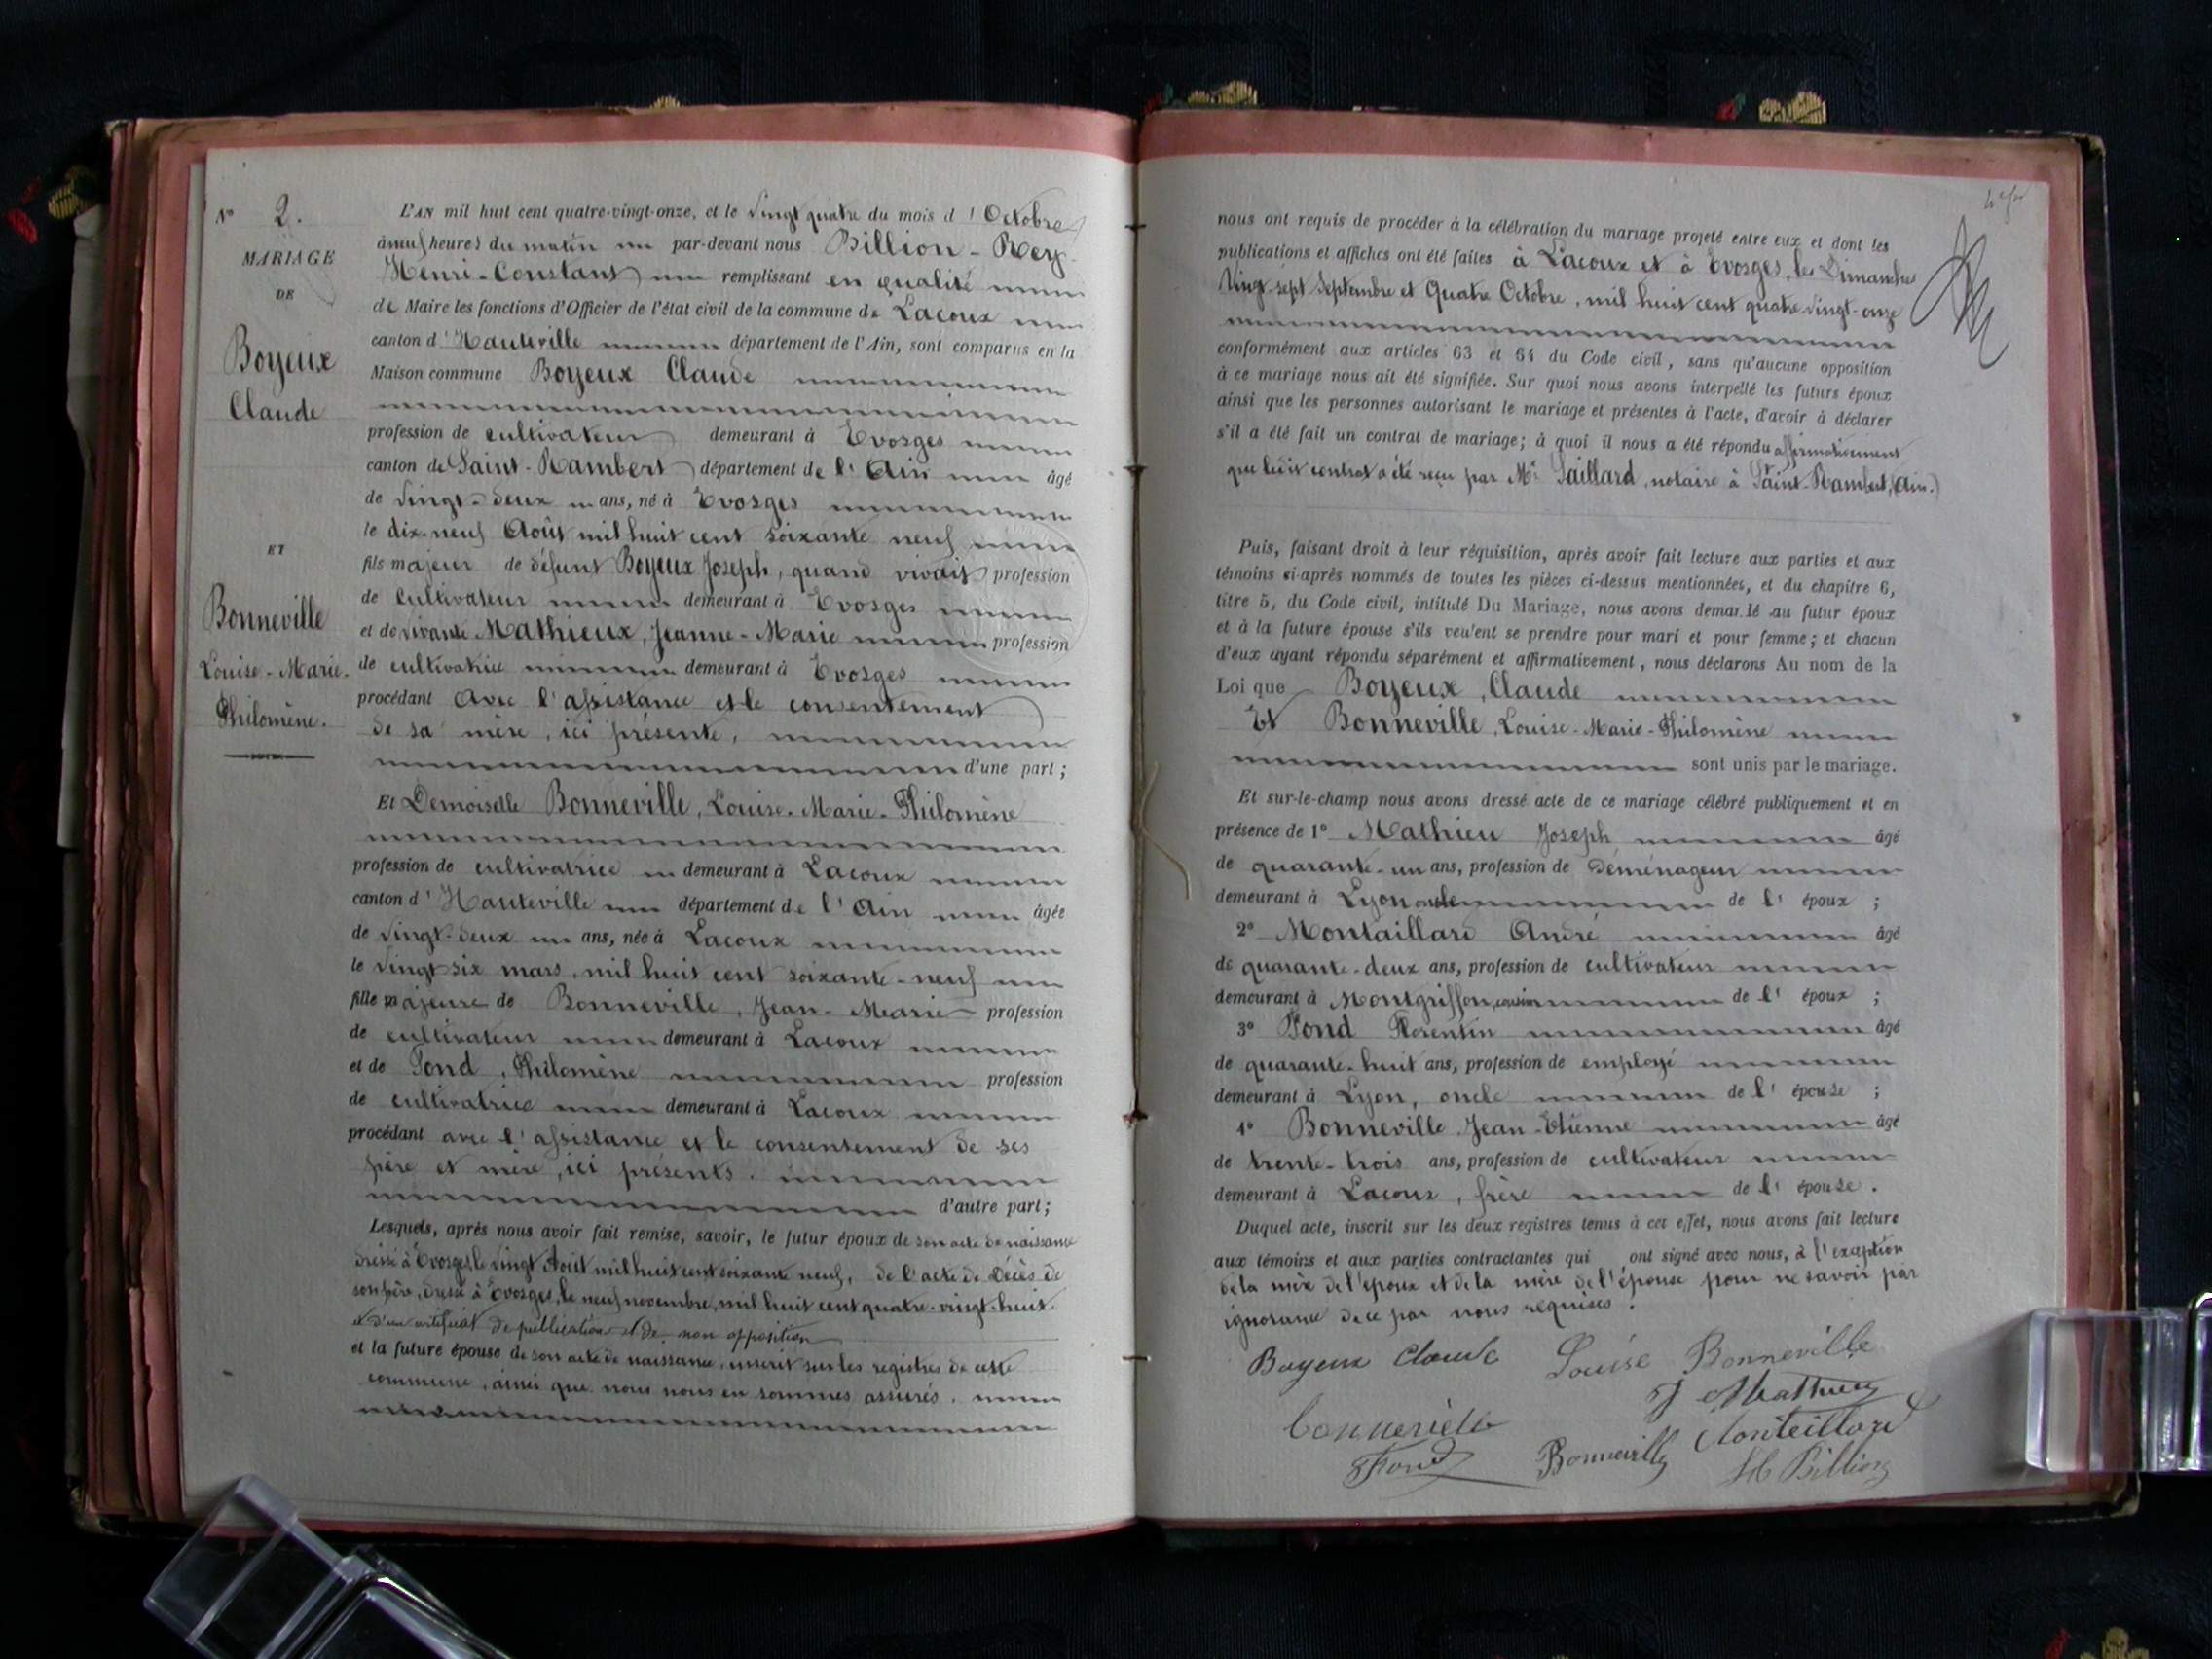 N° 2.
MARIAGE
DE
Boyeux
Claude
ET
Bonneville
Louise-Marie-
Philomène.
L'AN mil huit cent quatre-vingt-onze, et le vingt quatre du mois d'Octobre
à neuf heures du matin par-devant nous Billion-Rey
Henri-Constant remplissant en qualité
de Maire les fonctions d'Officier de l'état civil de la commune de Lacoux
canton d'Hauteville département de l'Ain, sont comparus en la
Maison commune Boyeux Claude
profession de cultivateur demeurant à Evosges
canton de Saint-Rambert département de l'Ain âgé
de vingt-deux ans, né à Evosges
le dix-neuf Août mil huit cent soixante neuf
fils majeur de défunt Boyeux Joseph, quand vivait profession
de cultivateur demeurant à Evosges
et de vivante Mathieux, Jeanne-Marie profession
de cultivatrice demeurant à Evosges
procédant avec l'assistance et le consentement
de sa mère, ici présente,
d'une part;
Et Demoiselle Bonneville, Louise-Marie-Philomène
profession de cultivatrice demeurant à Lacoux
canton d'Hauteville département de l'Ain âgée
de vingt-deux ans, née à Lacoux
le vingt-six mars, mil huit cent soixante-neuf
fille majeure de Bonneville, Jean-Marie profession
de cultivateur demeurant à Lacoux
et de Fond, Philomène profession
de cultivatrice demeurant à Lacoux
procédant avec l'assistance et le consentement de ses
père et mère, ici présents.
d'autre part;
Lesquels, après nous avoir fait remise, savoir, le futur époux de son acte de naissance
dressé à Evosges, le vingt Août mil huit cent soixante neuf, de l'acte de Décès de
son père, dressé à Evosges, le neuf novembre, mil huit cent quatre-vingt-huit.
et d'un certificat de publication et de non opposition
et la future épouse de son acte de naissance, inscrit sur les registres de cette
commune, ainsi que nous nous en sommes assurés.
nous ont requis de procéder à la célébration du mariage projeté entre eux et dont les
publications et affiches ont été faites à Lacoux et à Evosges, les Dimanches
Vingt-sept Septembre et Quatre Octobre, mil huit cent quatre-vingt-onze
conformément aux articles 63 et 64 du Code civil, sans qu'aucune opposition
à ce mariage nous ait été signifiée. Sur quoi nous avons interpellé les futurs époux
ainsi que les personnes autorisant le mariage et présentes à l'acte, d'avoir à déclarer
s'il a été fait un contrat de mariage; à quoi il nous a été répondu affirmativement
que ledit contrat a été reçu par Mr Saillard, notaire à Saint-Rambert, (Ain.)
Puis, faisant droit à leur réquisition, après avoir fait lecture aux parties et aux
témoins ci-après nommés de toutes les pièces ci-dessus mentionnées, et du chapitre 6,
titre 5, du Code civil, intitulé Du Mariage, nous avons demandé au futur époux
et à la future épouse s'ils veulent se prendre pour mari et pour femme; et chacun
d'eux ayant répondu séparément et affirmativement, nous déclarons Au nom de la
Loi que Boyeux, Claude
Et Bonneville, Louise-Marie-Philomène
sont unis par le mariage.
Et sur-le-champ nous avons dressé acte de ce mariage célébré publiquement et en
présence de 1° Mathieu Joseph âgé
de quarante-un ans, profession de Déménageur
demeurant à Lyon oncle de l'époux;
2° Montaillard André âgé
de quarante-deux ans, profession de cultivateur
demeurant à Montgriffon, cousin de l'époux;
3° Fond Florentin âgé
de quarante-huit ans, profession de employé
demeurant à Lyon, oncle de l'épouse;
4° Bonneville Jean-Etienne âgé
de trente-trois ans, profession de cultivateur
demeurant à Lacoux, frère de l'épouse.
Duquel acte, inscrit sur les deux registres tenus à cet effet, nous avons fait lecture
aux témoins et aux parties contractantes qui ont signé avec nous, à l'exception
de la mère de l'époux et de la mère de l'épouse pour ne savoir par
ignorance de ce par nous requises.
Boyeux Claude Louise Bonneville
J Mathieu
Bonneville Montaillard
Fond Bonneville H Billion